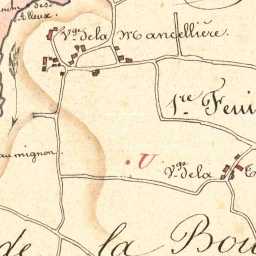 Vge de la Mancellière.
1re Feui
aumignon.
U
Vge de la
de la Bou